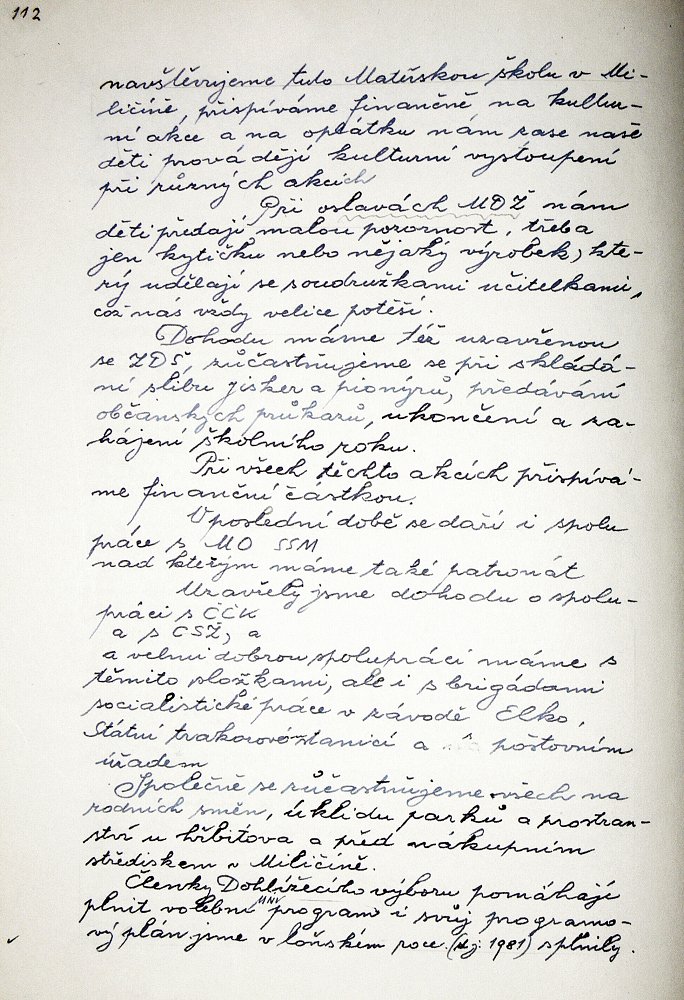 112
navštěvujeme tuto Mateřskou školu v Mi-
ličíně, přispíváme finančně na kultur-
ní akce a na oplátku nám zase naše
děti provádějí kulturní vystoupení
při různých akcích
Při oslavách MDŽ nám
děti předají malou pozornost, třeba
jen kytičku nebo nějaký výrobek, kte-
rý udělají se soudružkami učitelkami,
což nás vždy velice potěší.
Dohodu máme též uzavřenou
se ZDŠ, zúčastňujeme se při skládá-
ní slibu jisker a pionýrů, předávání
občanských průkazů, ukončení a za-
hájení školního roku.
Při všech těchto akcích přispívá-
me finanční částkou.
V poslední době se daří i spolu
práce s MO SSM
nad kterým máme také patronát
Uzavřely jsme dohodu o spolu-
práci s ČČK
a s ČSŽ, a
a velmi dobrou spolupráci máme s
těmito složkami, ale i s brigádami
socialistické práce v závodě Elko,
Státní trakorovóstanicí a poštovním
úřadem
Společně se zúčastňujeme všech na
rodních směn, úklidu parků a prostran-
ství u hřbitova a před nákupním
střediskem v Miličíně.
Členky Dohlížecího výboru pomáhají
plnit volební MNV program i svůj programo-
vý plán jsme v loňském roce (tj. 1981) splnily.